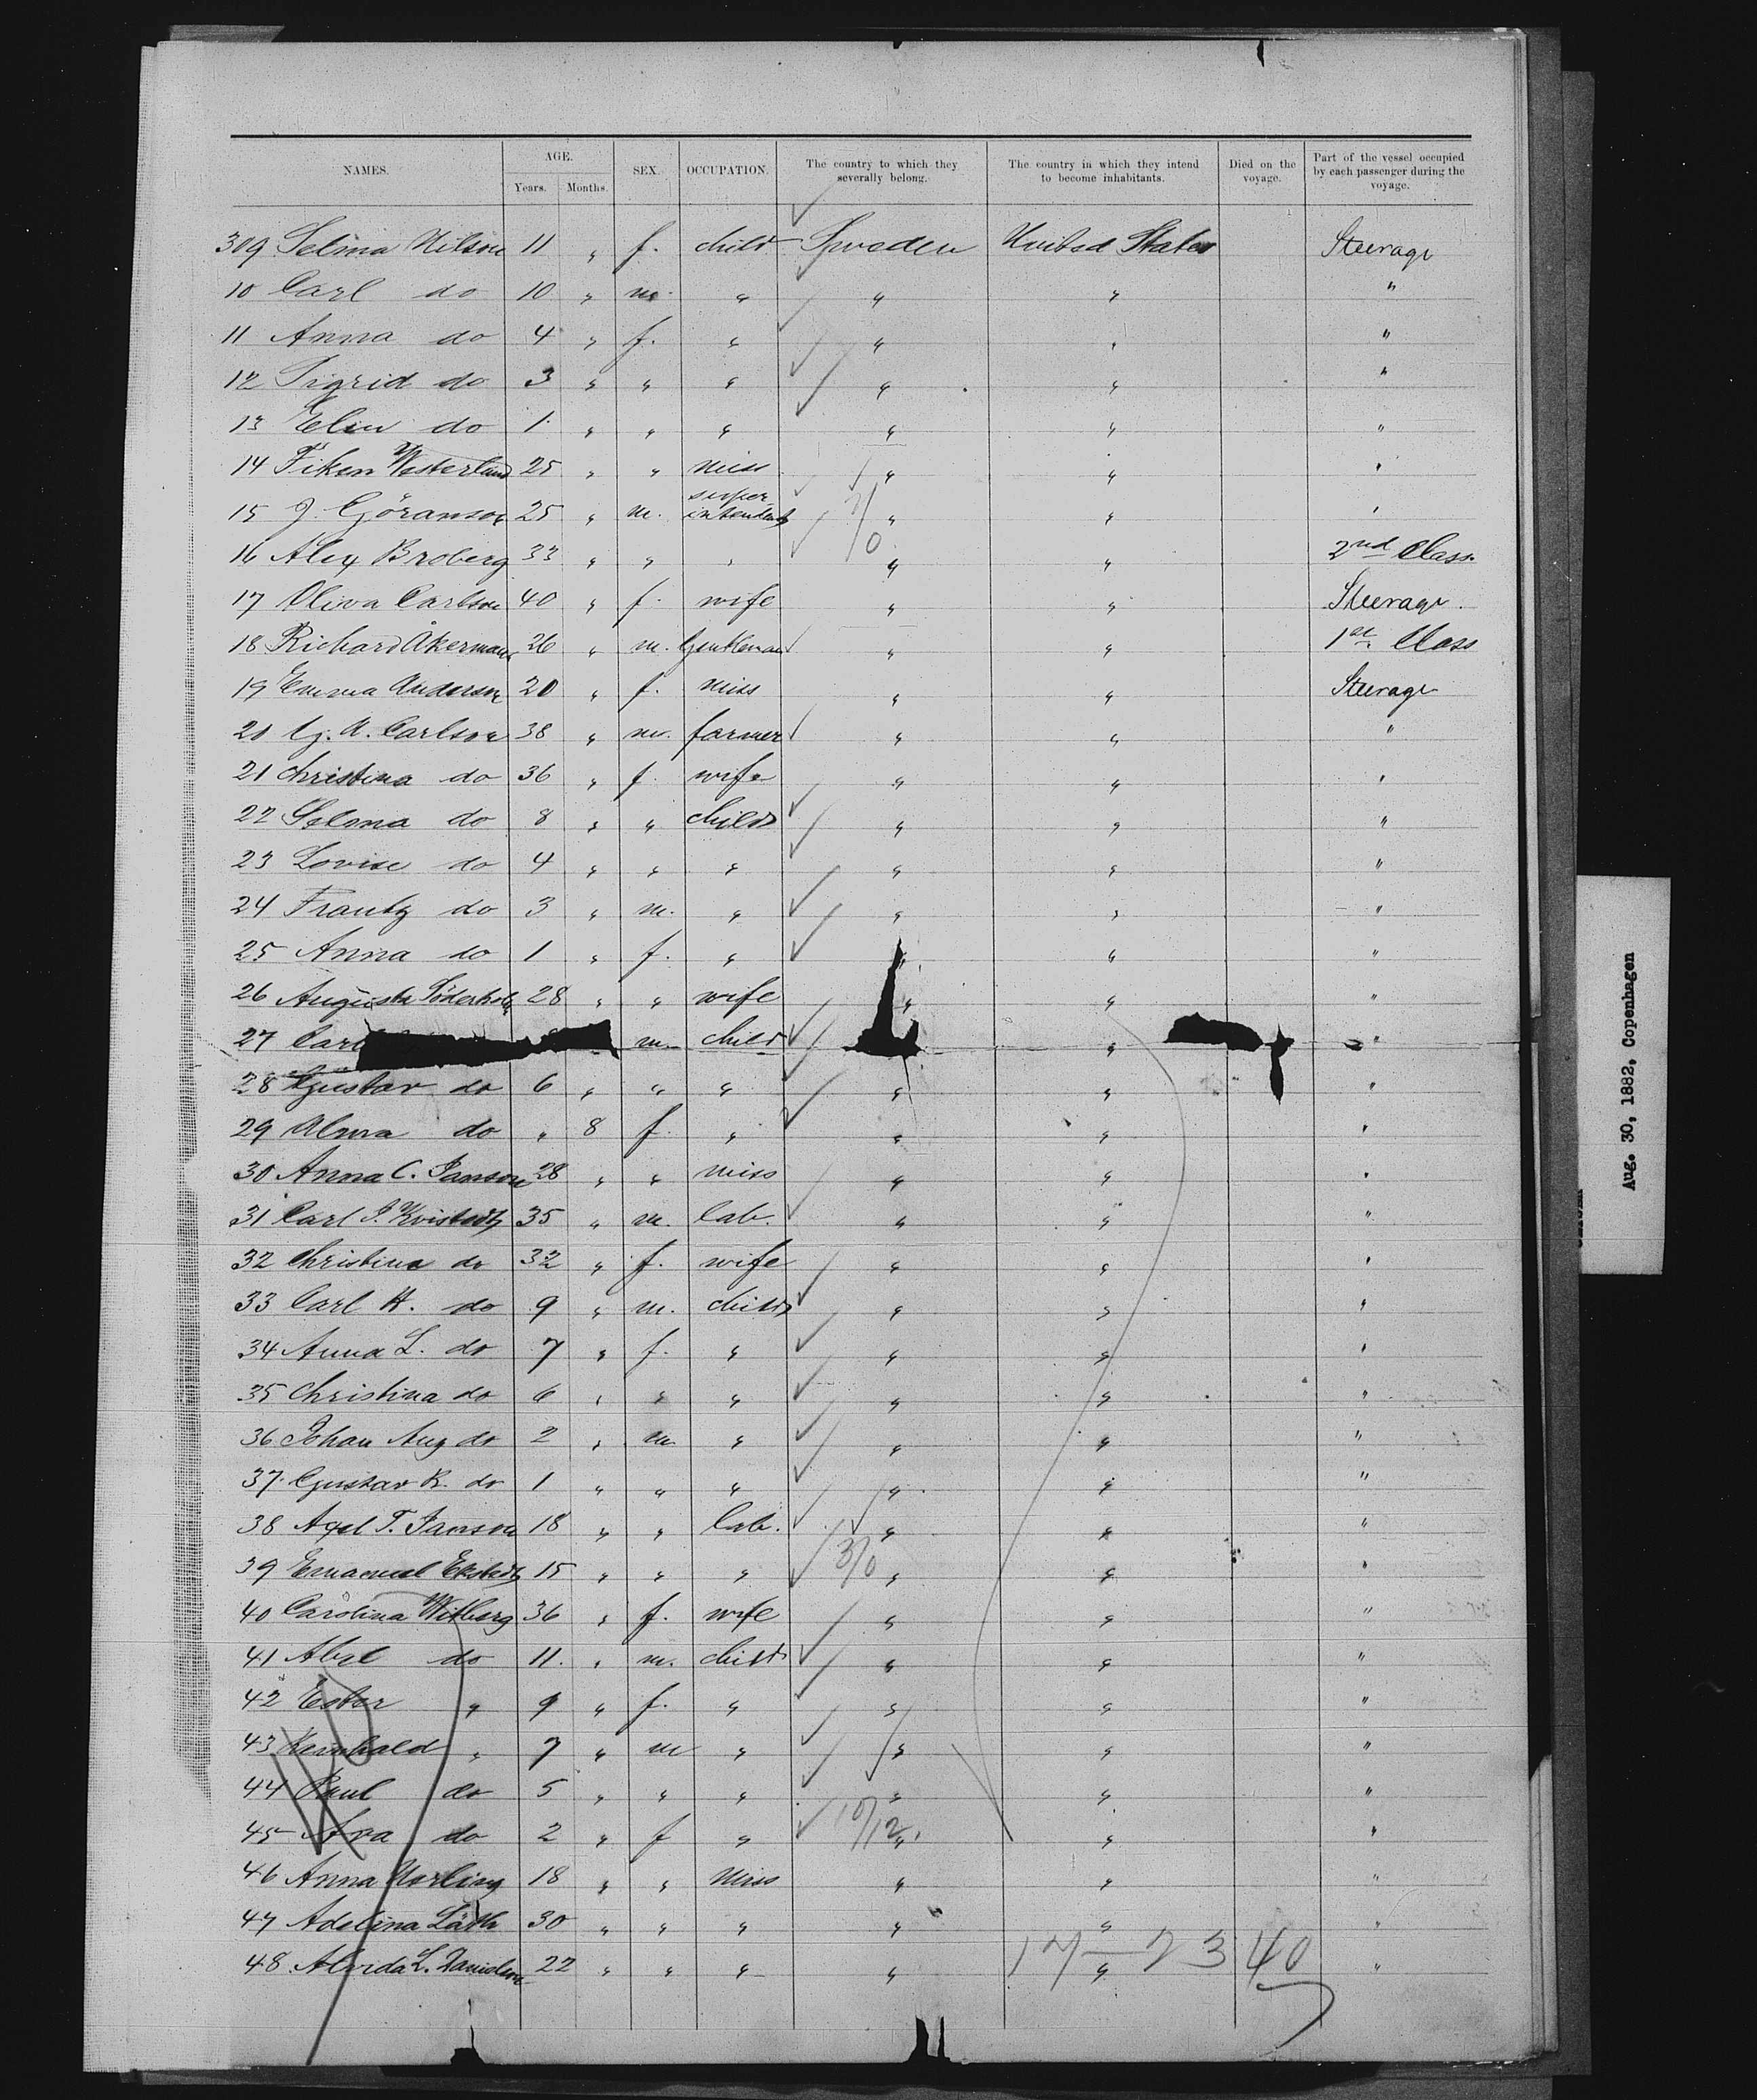 NAMES. AGE. Years. Months. SEX. OCCUPATION. The country to which they severally belong. The country in which they intend to become inhabitants. Died on the voyage. Part of the vessel occupied by each passenger during the voyage.
309 Selma Nilson 11 " f. child Sweden United States Steerage
10 Carl do 10 " m. " " " "
11 Anna do 4 " f. " " " "
12 Sigrid do 3 " " " " " "
13 Elin do 1 " " " " " "
14 Fiken Westerlund 25 " " miss " " "
15 J. Göranson 25 " m. super intendent " " "
16 Alex Broberg 33 " " " " " 2nd Class.
17 Oliva Carlson 40 " f. wife " " Steerage.
18 Richard Åkerman 26 " m. Gentleman " " 1st Class
19 Emma Anderson 20 " f. miss " " Steerage
20 G. A. Carlson 38 " m. farmer " " "
21 Christina do 36 " f. wife " " "
22 Selma do 8 " " child " " "
23 Lovise do 4 " " " " " "
24 Frantz do 3 " m. " " " "
25 Anna do 1 " f. " " " "
26 Augusta Söderholm 28 " " wife " " "
27 Carl m. child " "
28 Gustav do 6 " " " " " "
29 Alma do " 8 f. " " " "
30 Anna C. Janson 28 " " miss " " "
31 Carl J. Kvistedt 35 " m. lab. " " "
32 Christina do 32 " f. wife " " "
33 Carl H. do 9 " m. child " " "
34 Anna L. do 7 " f. " " " "
35 Christina do 6 " " " " " "
36 Johan Aug do 2 " m " " " "
37 Gustav R. do 1 " " " " " "
38 Axel T. Janson 18 " " lab. " " "
39 Emanuel Ekstedt 15 " " " " " "
40 Carolina Witberg 36 " f. wife " " "
41 Abel do 11. " m. child " " "
42 Ester " 9 " f. " " " "
43 " 7 " m " " " "
44 Paul do 5 " " " " " "
45 do 2 " f " 10/12 " " "
46 Anna Norling 18 " " Miss " " "
47 Adelina Läth 30 " " " " " "
48 Alvida L. Danielson 22 " " " " " "
17 - 23 40
Aug. 30, 1882, Copenhagen